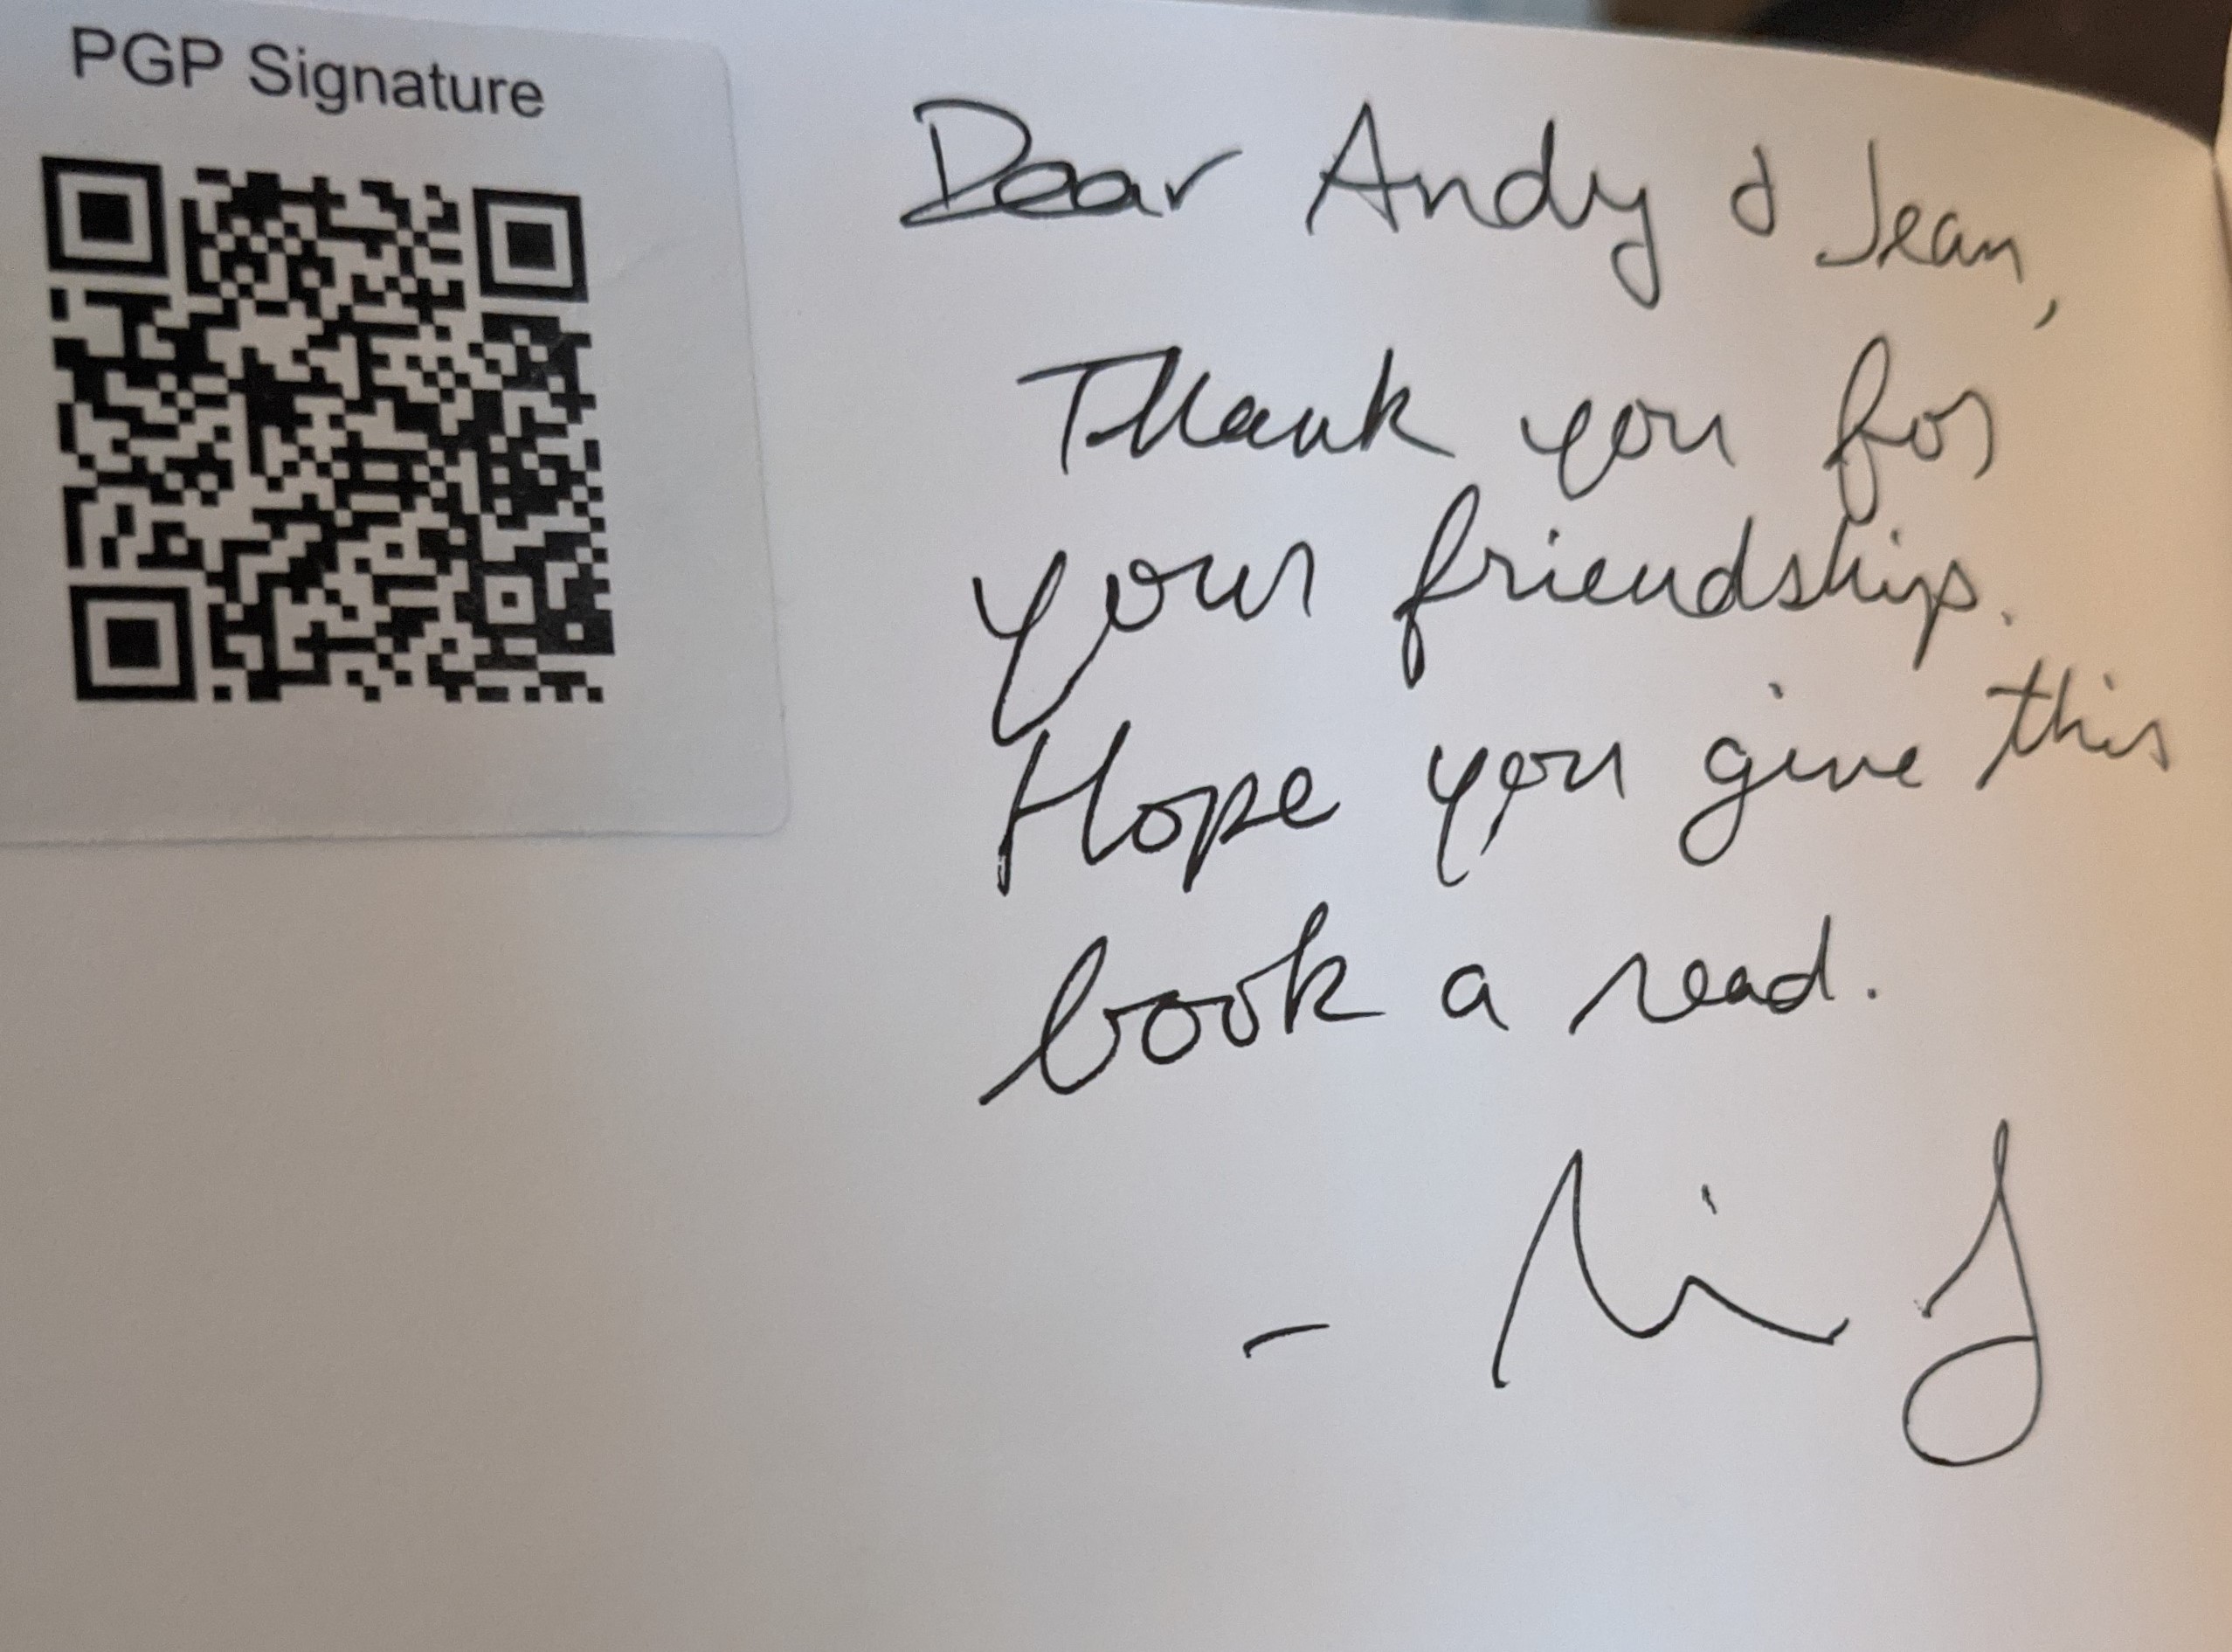 PGP Signature
Dear Andy & Jean,
Thank you for
your friendship.
Hope you give this
book a read.